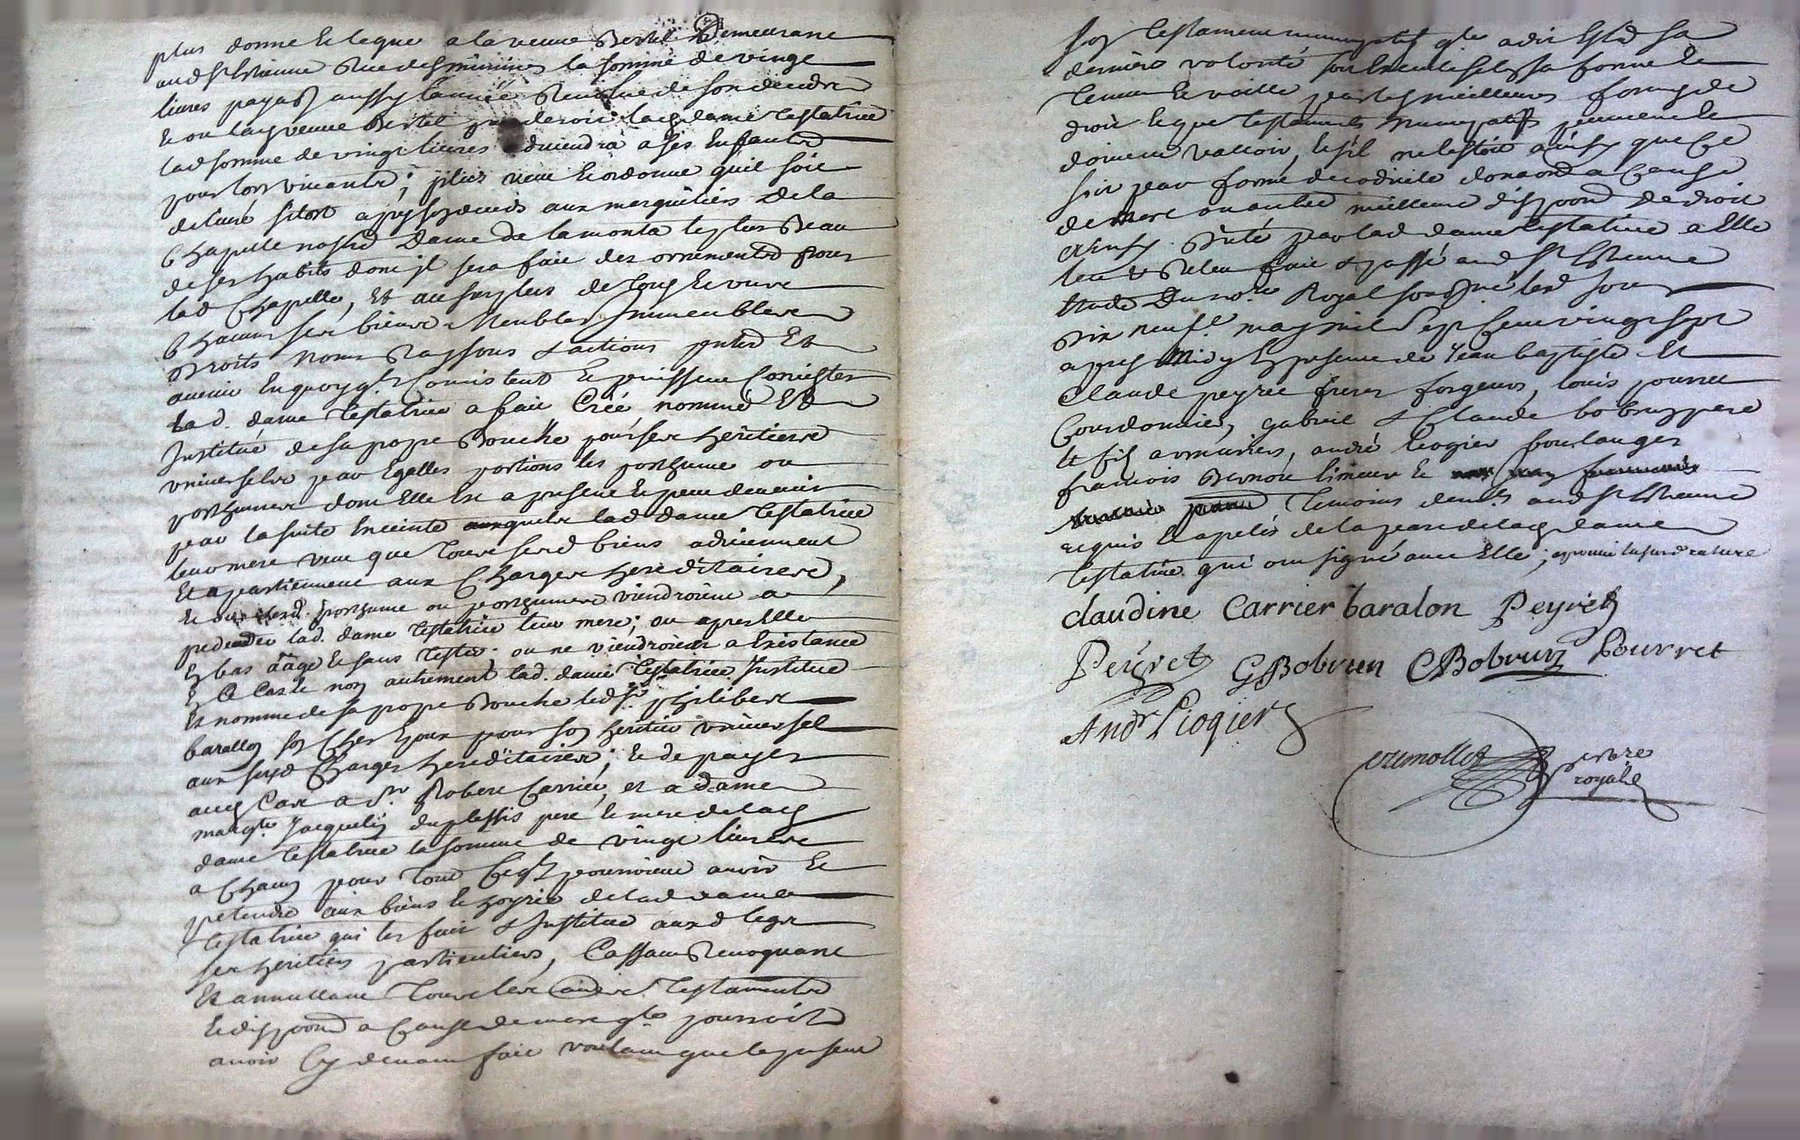 plus donne et legue a la veuve Bertet demeurant
aud St Etienne Rue des minimes la somme de vingt
livres payable aussy l'année Revolue de son deceds
et ou lad veuve Bertet lad dame testatrice
lad somme de vingt livres adviendra a ses Enfants
pour lors vivants; plus veut et ordonne qu'il soit
delivré sitost apres son deceds aux marguilliers de la
Chapelle nostre Dame de la monta le plus Beau
de ses habits dont jl sera fait des ornements pour
lad Chapelle, Et au surplus de tous Et une
Chacuns ses biens Meubles Jmmeubles
Droits noms Raysons & actions pnts Et
avenir En quoy qls Consistent Et puissent Consister
Lad. dame testatrice a fait Créé nommé Et
Jnstitué de sa propre Bouche pour ses heritiers
universels par Egalles portions les posthume ou
posthumes dont Elle Est a present Et peut devenir
par la suite Enceinte auxquels lad dame testatrice
leur mere veut que tous sesd biens adviennent
Et apartiennent aux Charges hereditaires,
Et ou lesd. posthume ou posthumes viendroient a
predeceder lad. dame testatrice leur mere; ou apres Elle
En bas aâge Et sans tester ou ne viendroient a Existance
En Ce Cas Et non autrement lad. dame testatrice Jnstitue
Et nomme de sa propre Bouche led Sr. philibert
barallon son Cher Epoux pour son heritier universel
aux susd Charges hereditaires; Et de payer
aud Cas a Sr. Robert Carrier, et a dame
margte Jacqueline duplessis pere Et mere de lad
dame testatrice la somme de vingt livres
a Chacun pour tout Ce ql pourroient avoir Et
pretendre aux biens Et hoyrie de lad dame
testatrice qui les fait & Jnstitue auxd legs
ses heritiers particuliers, Cassant Revoquant
Et annullant tous les autres testaments
Et dispoons a Cause de mort qlle pourroit
avoir Cy devant fait voulant que le present
son testament nuncupatif qle a dit Estre sa
derniere volonté sorte
tienne Et vaille par les meilleures formes de
droit Et que testaments nuncupatifs peuvent Et
doivent valloir, Et s'il ne l'estoit ainsy que Ce
soit par forme de codicile donaon a Cause
de mort ou autre meilleure dispoon de droit
ainsy dicté par lad dame testatrice a Elle
leu & Releu fait & passé aud St Etienne
Etude du noe. Royal soussigné led jour
dix neufe. may mil sept Cent vingt sept
apres midy En presence de Jean baptiste Et
Claude peyret freres forgeurs, louis pourret
Courdonnier, gabriel & Claude bobrun pere
Et fils armuriers, andré liogier boulanger
francois Bernou limeur Et
temoins demts aud St Etienne
requis Et apelés de la part de lad dame
testatrice qui ont signé avec Elle; approuvé la susd rature
claudine Carrier baralon Peyret
Peyret GBobrun CBobrun Pourret
Andr Liogier
notre
royale